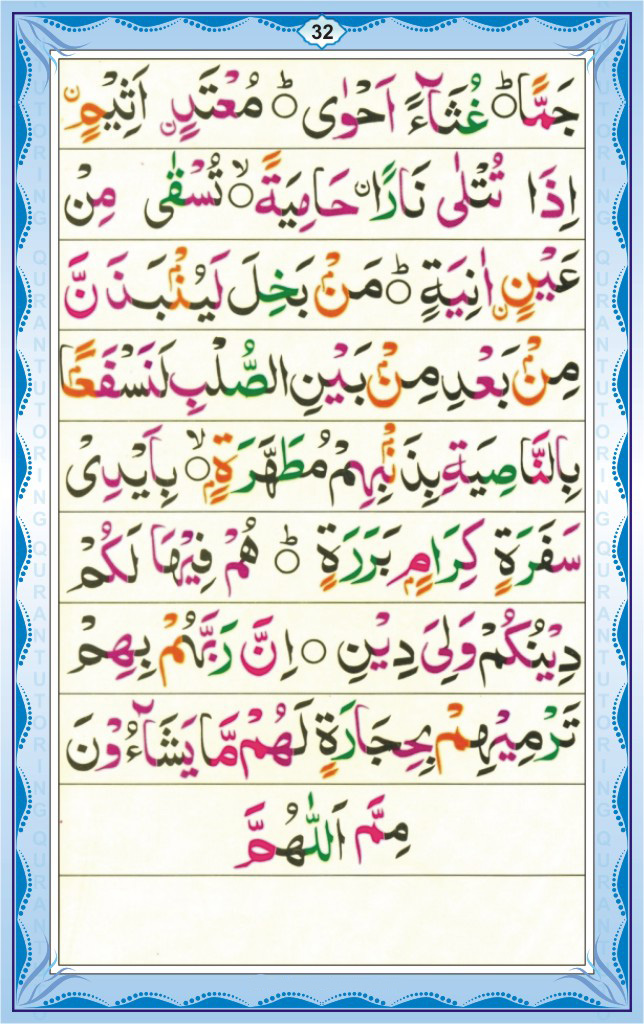 32
جَمًّا ؕ○ غُثَآءً اَحْوٰى ؕ○ مُعْتَدٍ اَثِيْمٍ
اِذَا تُتْلٰى نَارًا حَامِيَةً ۙ○ تُسْقٰى مِنْ
عَيْنٍ اٰنِيَةٍ ؕ○ مَنْۢ بَخِلَ لَيُنْۢبَذَنَّ
مِنْۢ بَعْدِ مِنْۢ بَيْنِ الصُّلْبِ لَنَسْفَعًۢا
بِالنَّاصِيَةِ بِذَنْۢبِهِمْ مُطَهَّرَةٍۭ ۙ○ بِاَيْدِىْ
سَفَرَةٍ كِرَامٍۭ بَرَرَةٍ ؕ○ هُمْ فِيْهَا لَكُمْ
دِيْنُكُمْ وَلِىَ دِيْنِ ○ اِنَّ رَبَّهُمْ بِهِمْ
تَرْمِيْهِمْ بِحِجَارَةٍ لَهُمْ مَّا يَشَآءُوْنَ
مِمَّ اَللّٰهُمَّ
QURAN TUTORING QURAN TUTORING QURAN TUTORING